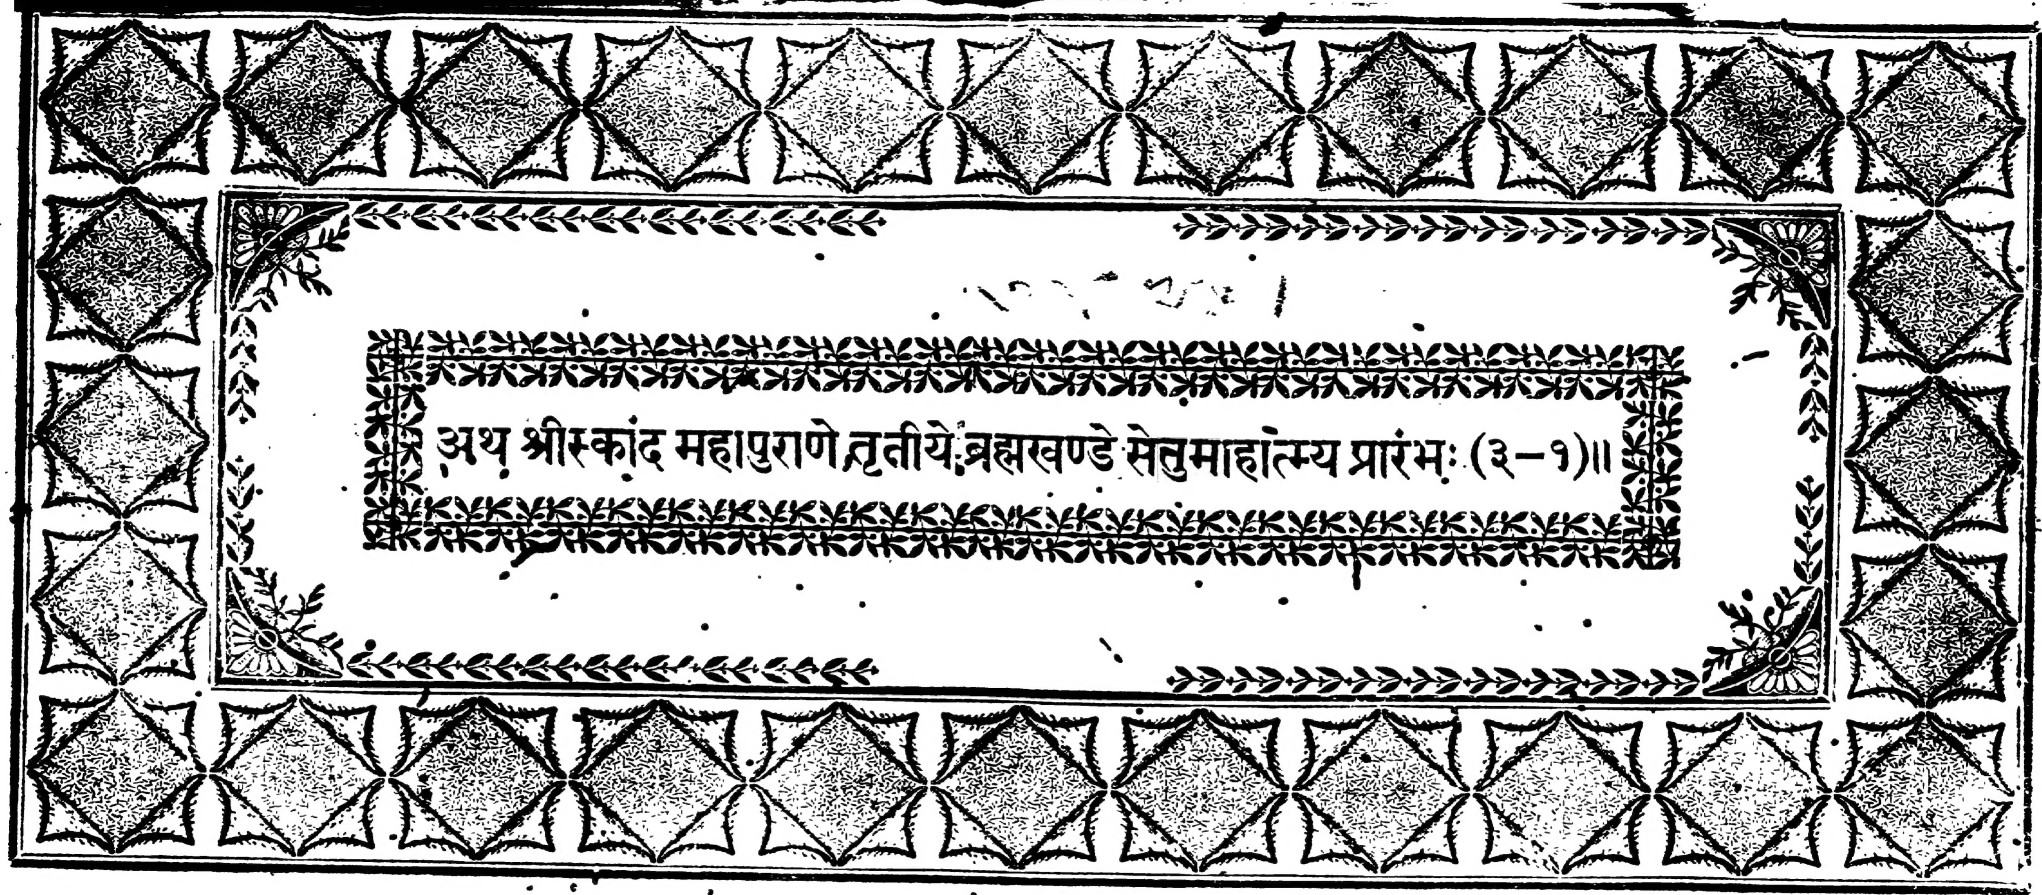 अथ श्रीस्कांद महापुराणे तृतीये ब्रह्मखण्डे सेतुमाहात्म्य प्रारंभः (३–१)॥